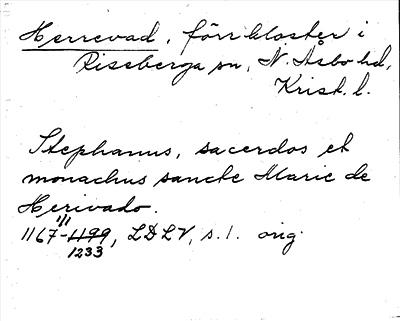 Herrevad, förr kloster i
Riseberga sn, N. Åsbo hd,
Krist. l.
Stephanus, sacerdos et
monachus sancte Marie de
Herivado.
!!!
1167-1199, LDLV, s. 1. orig
1233